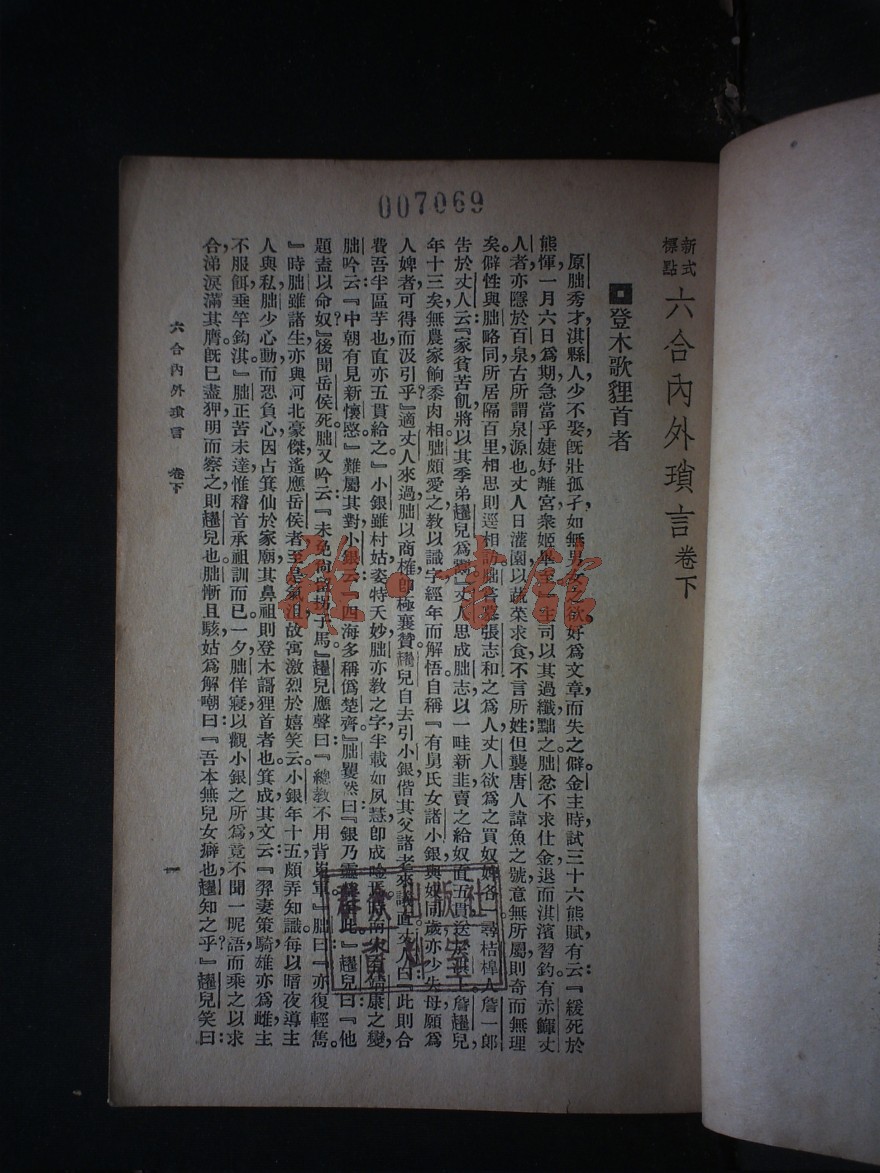 007069
新式標點 六合內外瑣言 卷下
登木歌貍首者
原朏秀才淇縣人少不娶旣壯孤孑如無男女之欲好爲文章而失之僻金主時試三十六熊賦有云『緩死於
熊惲一月六日爲期急當乎婕妤離宮衆姬畢 主司以其過纖黜之朏忿不求仕金退而淇濱習釣有亦鰥丈
人者亦隱於百泉古所謂泉源也丈人日灌園以蔬菜求食不言所姓但襲唐人諱魚之號意無所屬則奇而無理
矣僻性與朏略同所居隔百里相思則逕相訪朏 慕張志和之爲人丈人欲爲之買奴婢各一尋桔槹人詹一郎
告於丈人云『家貧苦飢將以其季弟 兒爲 丈人思成朏志以一畦新韭賣之給奴直五貫送 詹 兒
年十三矣無農家餉黍肉相朏頗愛之教以識字經年而解悟自稱『有舅氏女諸小銀與奴同歲亦少失母願爲
人婢者可得而汲引乎』適丈人來過朏以商榷卽極襄贊 兒自去引小銀偕其父諸老來議直丈人曰『此則合
費吾半區芋也直亦五貫給之』小銀雖村姑姿特夭妙朏亦教之字半載如夙慧卽成唫 康之變
朏吟云『中朝有見新懷愍』難屬其對小銀云『四海多稱僞楚齊』朏矍然曰『銀乃 此』 兒曰『他
題盡以命奴』後聞岳侯死朏又吟云『未免尙留拐子馬』 兒應聲曰『總教不用背嵬軍』朏曰『亦復輕雋
』時朏雖諸生亦與河北豪傑遙應岳侯者至是氣沮故寓激烈於嬉笑云小銀年十五頗弄知識每以暗夜導主
人與私朏少心動而恐負心因占箕仙於家廟其鼻祖則登木謌貍首者也箕成其文云『羿妻策騎雄亦爲雌主
不服餌垂竿鈎淇』朏正苦未達惟稽首承祖訓而已一夕朏佯寢以觀小銀之所爲竟不聞一昵語而乘之以求
合涕淚滿其膺旣已盡狎明而察之則 兒也朏慚且駭姑爲解嘲曰『吾本無兒女癖也 知之乎』 兒笑曰
六合內外瑣言 卷下
一
雜·書館
出版社